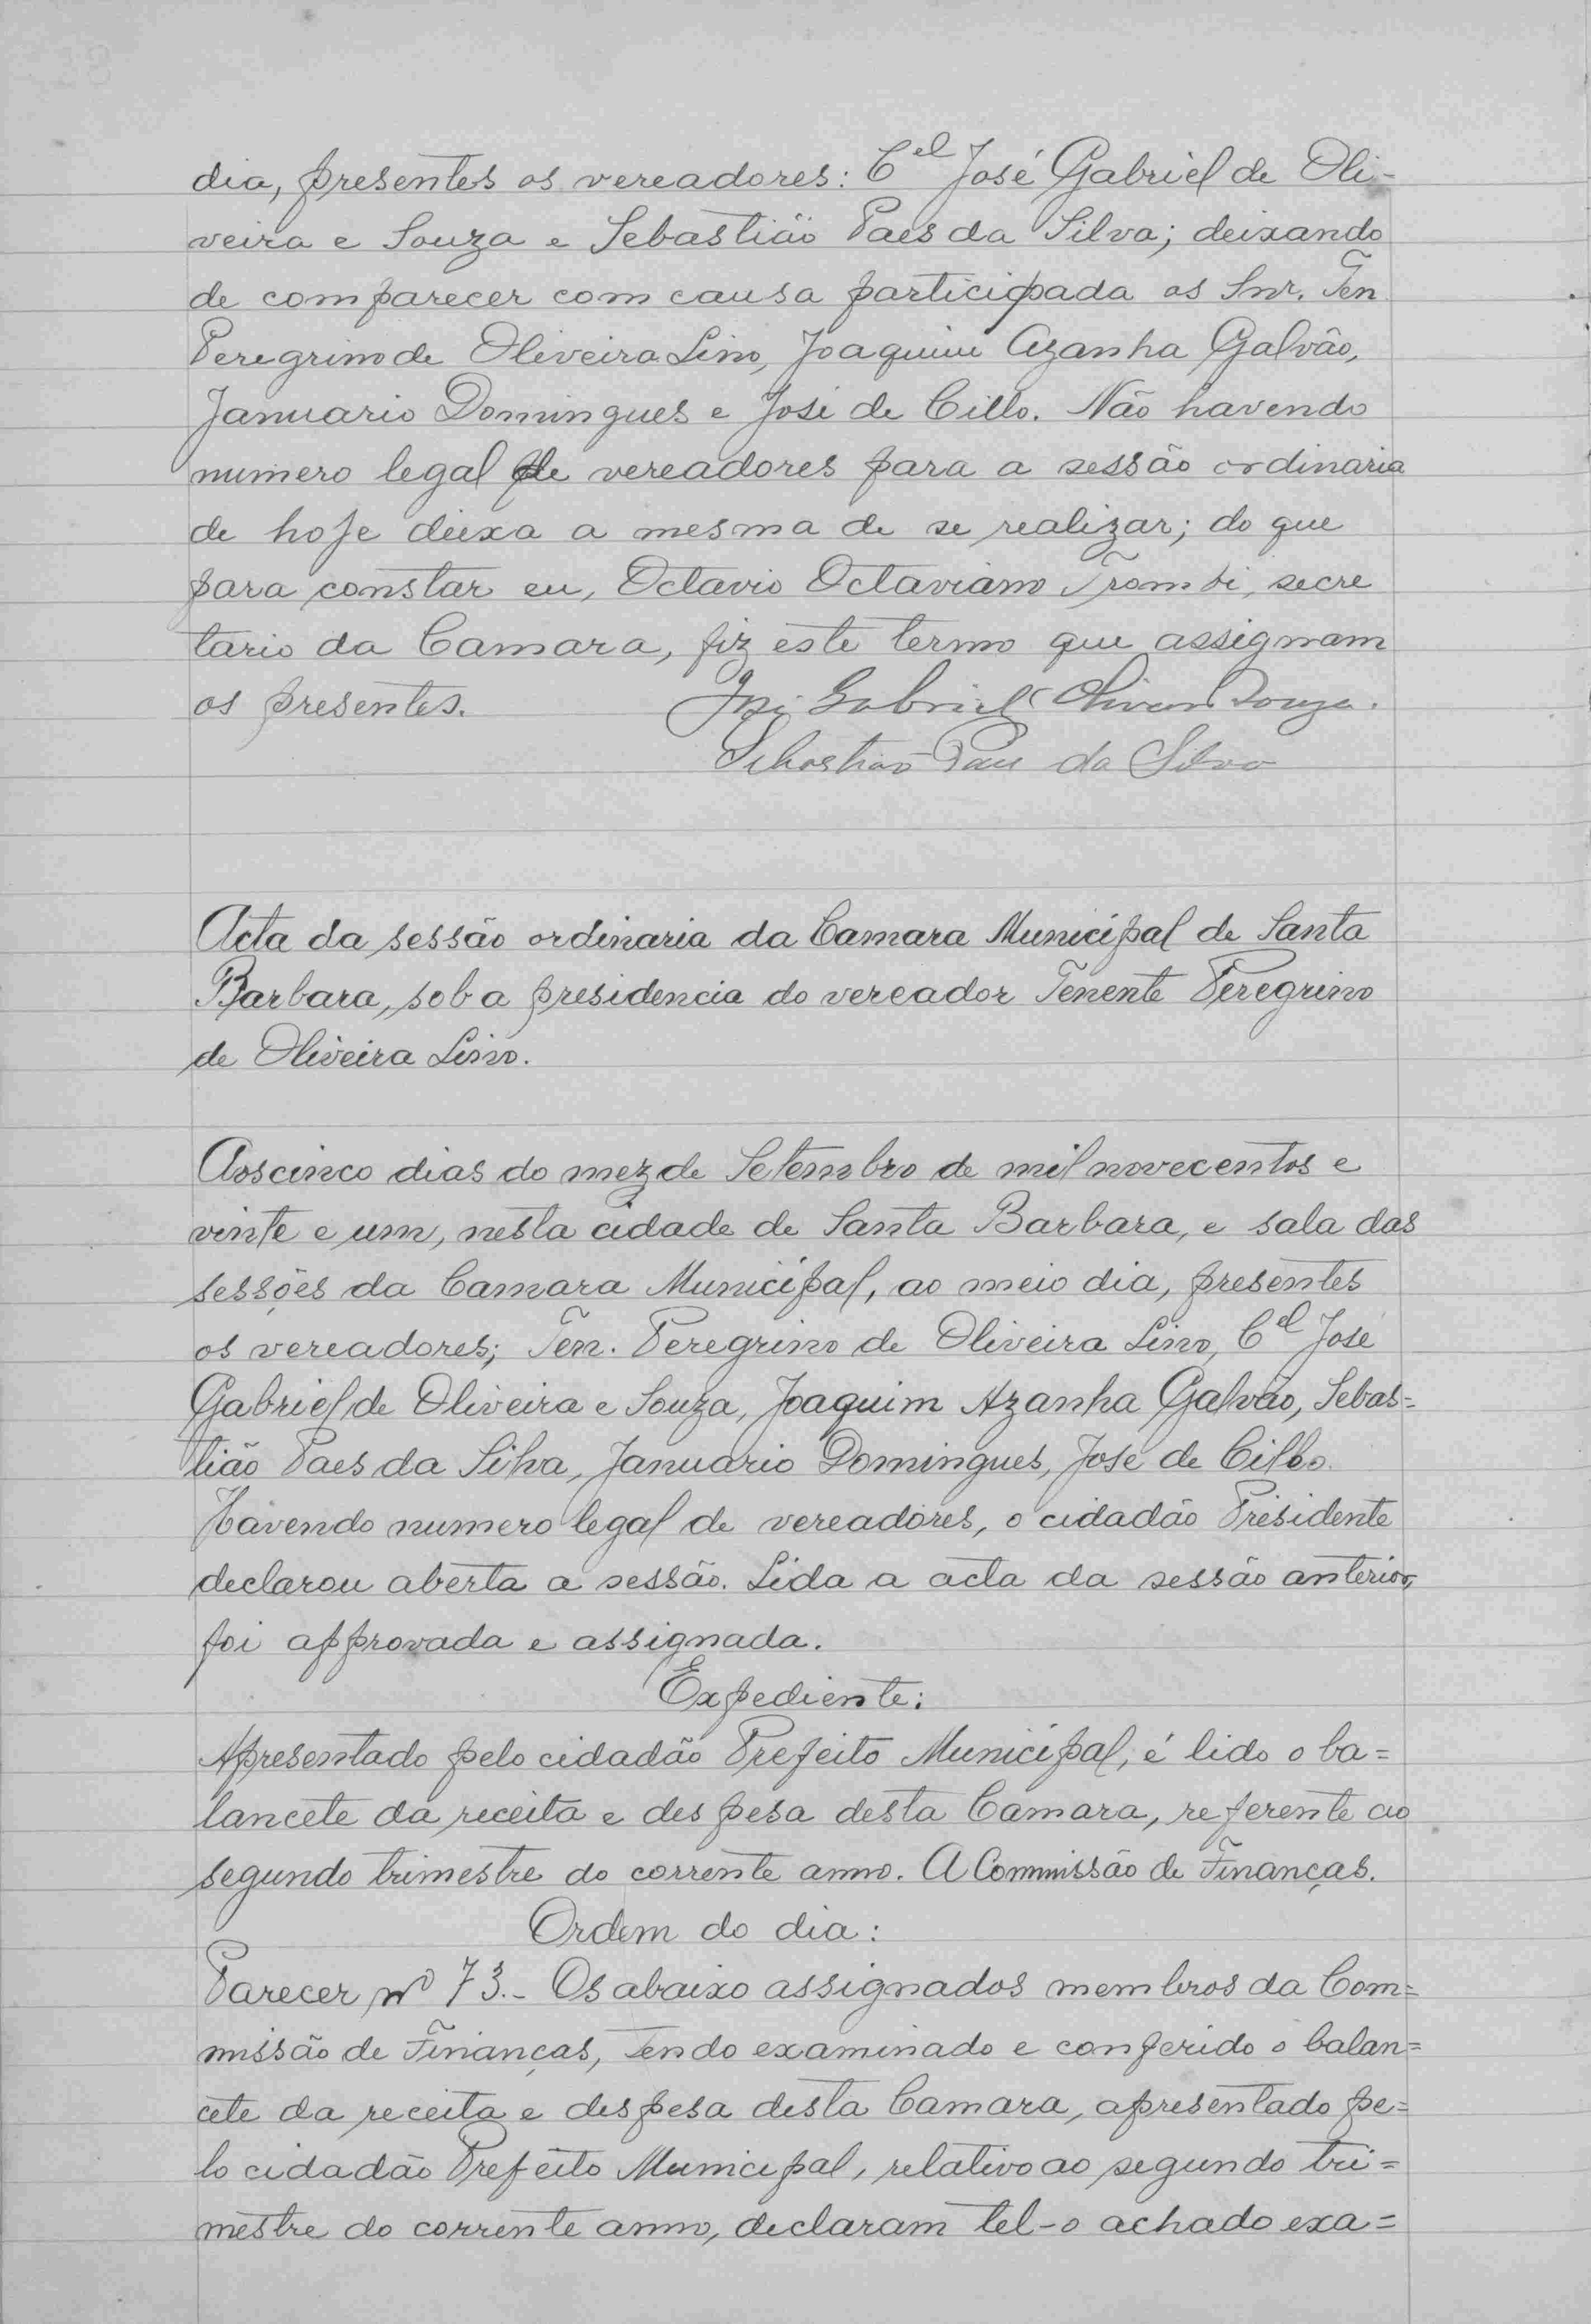 dia, presentes os vereadores: Cel José Gabriel de Oli-
veira e Souza e Sebastião Paes da Silva; deixando
de comparecer com causa participada os Snr. Ten
Peregrino de Oliveira Lino, Joaquim Azanha Galvão,
Januario Domingues e José de Cillo. Não havendo
numero legal de vereadores para a sessão ordinaria
de hoje deixa a mesma de se realizar; do que
para constar eu, Octavio Octaviano Trombi, secre
tario da Camara, fiz este termo que assignam
os presentes. José Gabriel Oliveira Souza.
Sebastião Paes da Silva
Acta da sessão ordinaria da Camara Municipal de Santa
Barbara, sob a presidencia do vereador Tenente Peregrino
de Oliveira Lino.
Aos cinco dias do mez de Setembro de mil novecentos e
vinte e um, nesta cidade de Santa Barbara, e sala das
sessões da Camara Municipal, ao meio dia, presentes
os vereadores; Ten. Peregrino de Oliveira Lino, Cel José
Gabriel de Oliveira e Souza, Joaquim Azanha Galvão, Sebas=
tião Paes da Silva, Januario Domingues, José de Cillo.
Havendo numero legal de vereadores, o cidadão Presidente
declarou aberta a sessão. Lida a acta da sessão anterior,
foi approvada e assignada.
Expediente:
Apresentado pelo cidadão Prefeito Municipal, é lido o ba=
lancete da receita e despesa desta Camara, referente ao
segundo trimestre do corrente anno. A Commissão de Finanças.
Ordem do dia:
Parecer nº 73.- Os abaixo assignados membros da Com=
missão de Finanças, tendo examinado e conferido o balan=
cete da receita e despesa desta Camara, apresentado pe=
lo cidadão Prefeito Municipal, relativo ao segundo tri=
mestre do corrente anno, declaram tel-o achado exa=